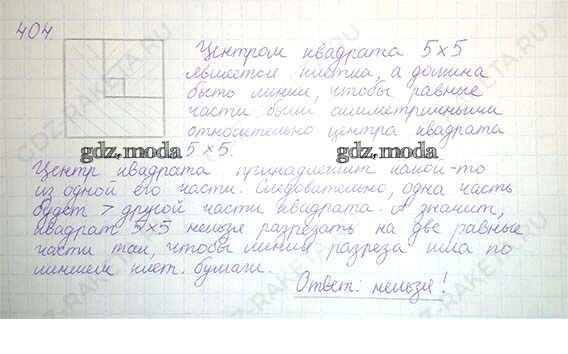 404.
Центром квадрата 5×5
является клетка, а должна
быть линия, чтобы равные
части были симметричными
относительно центра квадрата
5×5.
Центр квадрата принадлежит какой-то
из одной его части. Следовательно, одна часть
будет > другой части квадрата. А значит,
квадрат 5×5 нельзя разрезать на две равные
части так, чтобы линия разреза шла по
линиям клет. бумаги.
Ответ: нельзя!
gdz.moda
gdz.moda
GDZ-RAKETA.RU